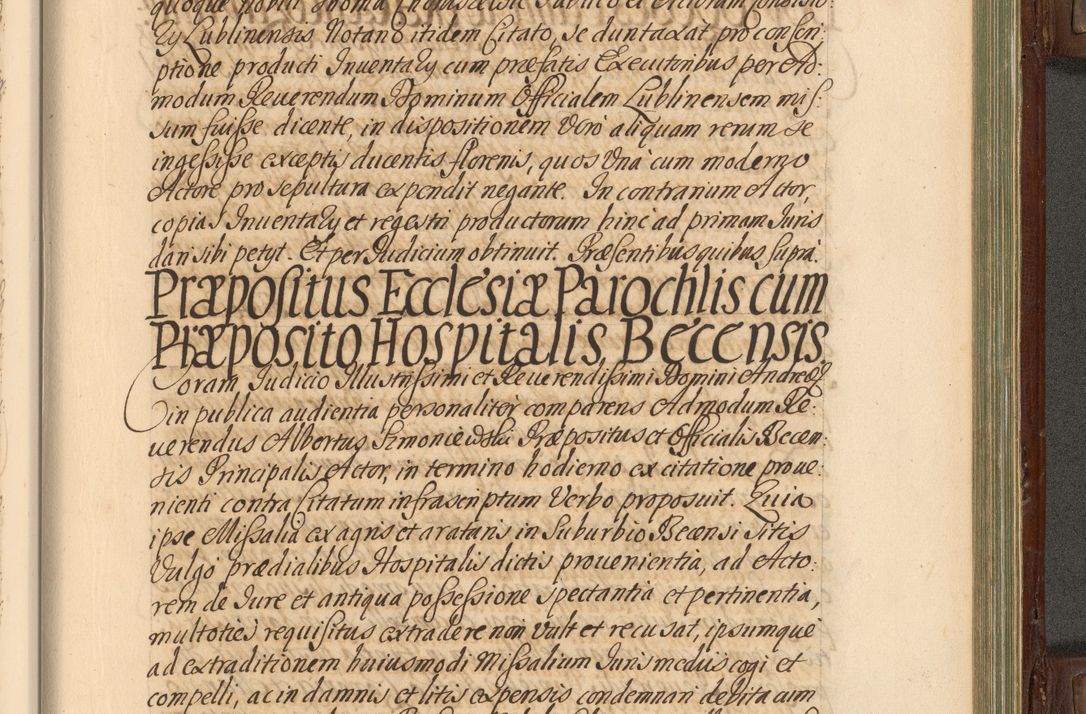 quoque Nobili Thoma
ẏ Lublinensis Notario itidem Citato, se duntaxat pro conscri-
ptione producti Inventarẏ cum præfatis Executoribus per Ad-
modum Reuerendum Dominum Officialem Lublinensem mis-
sum fuisse dicente, in dispositionem vero aliquam rerum se
ingessisse exceptis ducentis florenis, quos vna cum moderno
Actore pro sepultura expendit negante. In contrarium Actor,
copias Inuentarẏ et regestri productorum hinc ad primam Iuris
dari sibi petẏt. Et per Iudicium obtinuit. Præsentibus quibus supra.
Præpositus Ecclesiæ Parochlis cum
Præposito Hospitalis Becensis.
Coram Iudicio Illustrissimi et Reuerendissimi Domini Andreæ
in publica audientia personaliter comparens Admodum Re-
uerendus Albertus Simoniewski Præpositus et Officialis Becen-
sis Principalis Actor, in termino hodierno ex citatione proue-
nienti contra Citatum infrascriptum Verbo proposuit. Quia
ipse Missalia ex agris et arataris in Suburbio Becensi Sitis
Vulgo prædialibus Hospitalis dictis prouenientia, ad Acto-
rem de Iure et antiqua possessione spectantia et pertinentia,
multoties requisitus extradere non vult et recusat, ipsumque
ad extraditionem huiusmodi Missalium Iuris mediis cogi et
compelli, ac in damnis et litis expensis condemnari debita cum